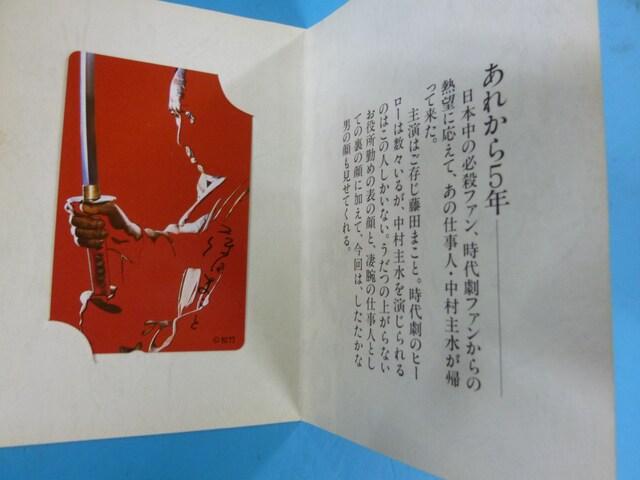 あれから5年
日本中の必殺ファン、時代劇ファンからの
熱望に応えて、あの仕事人・中村主水が帰
って来た。
主演はご存じ藤田まこと。時代劇のヒー
ローは数々いるが、中村主水を演じられる
のはこの人しかいない。うだつの上がらない
お役所勤めの表の顔と、凄腕の仕事人とし
ての裏の顔に加えて、今回は、したたかな
男の顔も見せてくれる。
©松竹